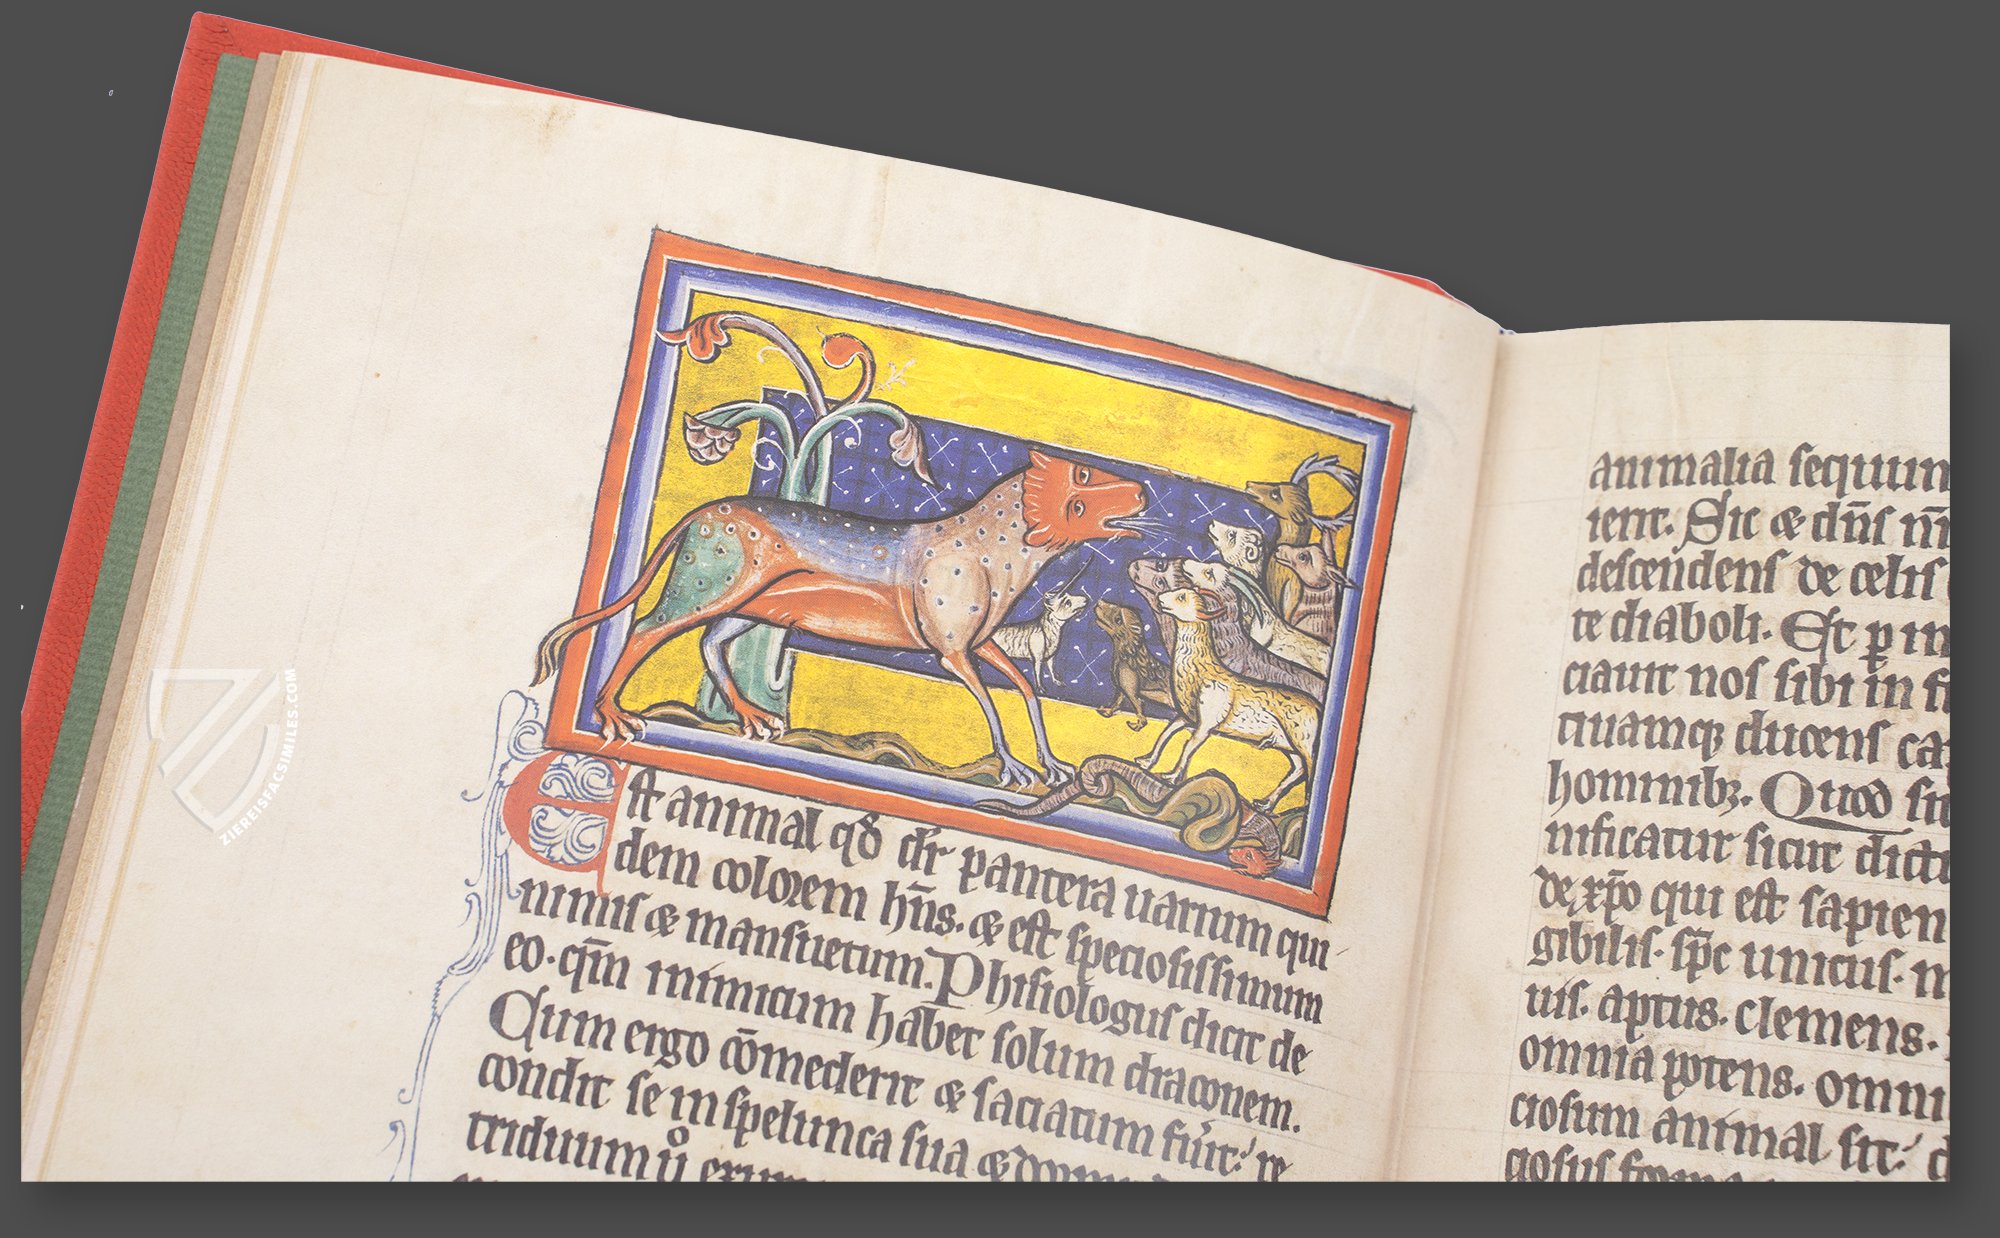 Est animal qđ dr̄ pantera uarium qui-
dem colorem hn̄s. & est speciosissimum
nimis & mansuetum. Phisiologus dicit de
eo. qm̄ inimicum habet solum draconem.
Cum ergo cōmederit & saciatum fu̾it: re
condit se in spelunca sua &
triduum
animalia secuun
ierit. Sic & dn̄s nr̄
descendens de celis
te diaboli. Et p in
ciauit nos sibi in fi
tiuamq; ducens ca
hominib;. Quod si
nificatur sicut dictu
de xp̄o qui est sapien
gibilis. sp̄c unicus. m
uis. aptus. clemens.
omnia potens. omni
ciosum animal sit: d
ZIEREISFACSIMILES.COM